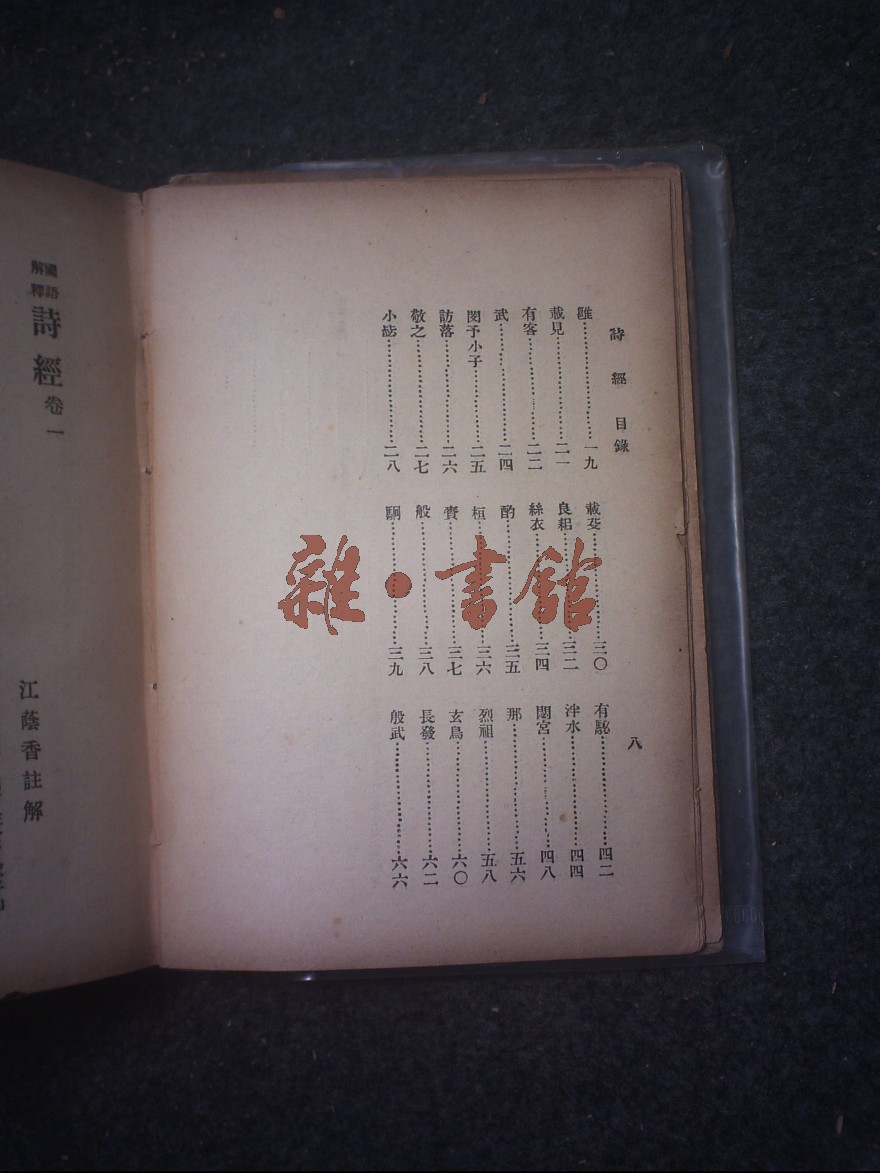 詩經目錄
八
雝⋯⋯一九
載見⋯⋯二一
有客⋯⋯二二
武⋯⋯二四
閔予小子⋯⋯二五
訪落⋯⋯二六
敬之⋯⋯二七
小毖⋯⋯二八
載芟⋯⋯三〇
良耜⋯⋯三二
絲衣⋯⋯三四
酌⋯⋯三五
桓⋯⋯三六
賚⋯⋯三七
般⋯⋯三八
駉⋯⋯三九
有駜⋯⋯四二
泮水⋯⋯四四
閟宮⋯⋯四八
那⋯⋯五六
烈祖⋯⋯五八
玄鳥⋯⋯六〇
長發⋯⋯六二
殷武⋯⋯六六
國語解釋詩經卷一
江蔭香註解
雜·書館